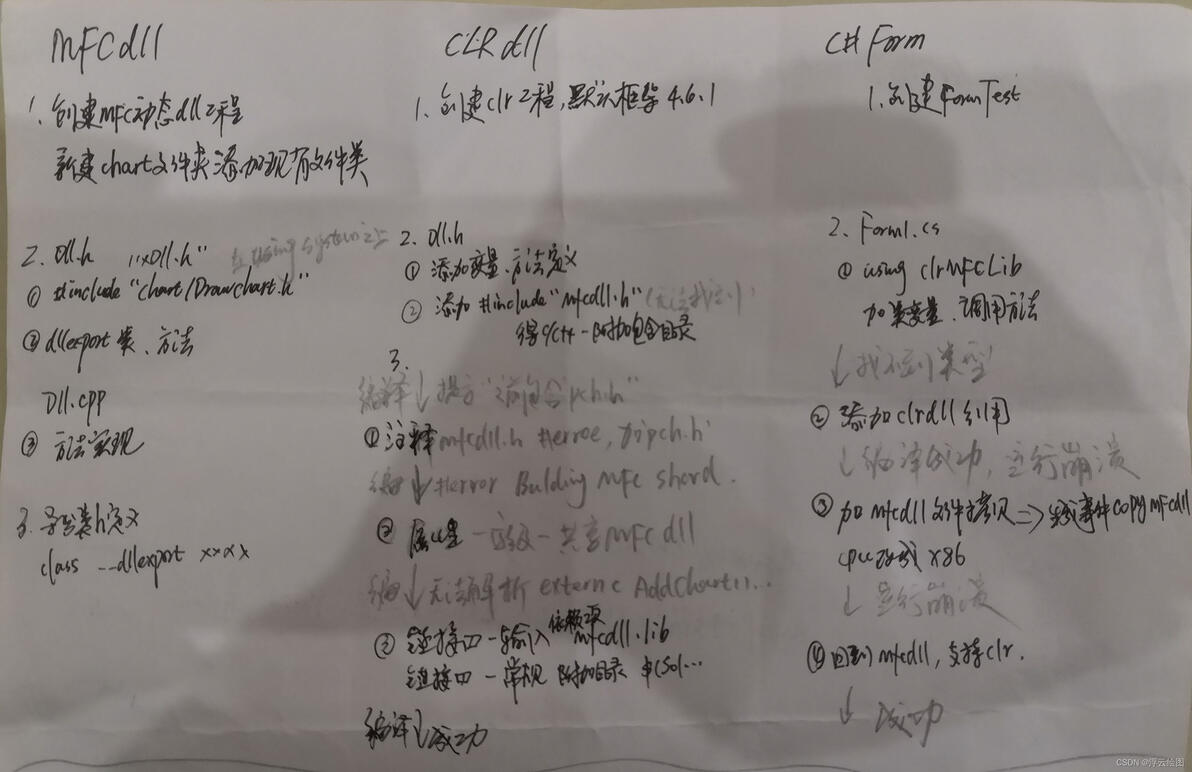 MFCdll
1. 创建mfc动态dll工程
新建chart文件夹添加现有文件类
2. Dll.h "xxDll.h"
在using system之上
① #include "chart/Drawchart.h"
② dllexport 类、方法
Dll.cpp
③ 方法实现
3. 导出类h定义
class --dllexport xxxx
CLR dll
1. 创建clr工程,默认框架4.6.1
2. Dll.h
① 添加变量、方法定义
② 添加 #include "mfcdll.h" (无法找到)
c/c++ - 附加包含目录
3.
编译↓提示"请包含pch.h"
① 注释mfcdll.h #erroe, 加pch.h
编↓#error Bulding mfc shard.
② 属性 - 高级 - 共享MFC dll
编↓无法解析 extern c AddChart()...
② 链接口 - 输入 依赖项 mfcdll.lib
链接口 - 常规 附加目录 $(Sol...
编译↓成功
C# Form
1. 创建FormTest
2. Form1.cs
① using clrMFCLib
加类变量、调用方法
↓找不到类型
② 添加clrdll引用
↓编译成功,运行崩溃
③ 加mfcdll文件拷贝=>生成事件copy mfcdll
cpu改成x86
↓运行崩溃
④ 回到mfcdll,支持clr.
↓成功
CSDN @浮云绘图